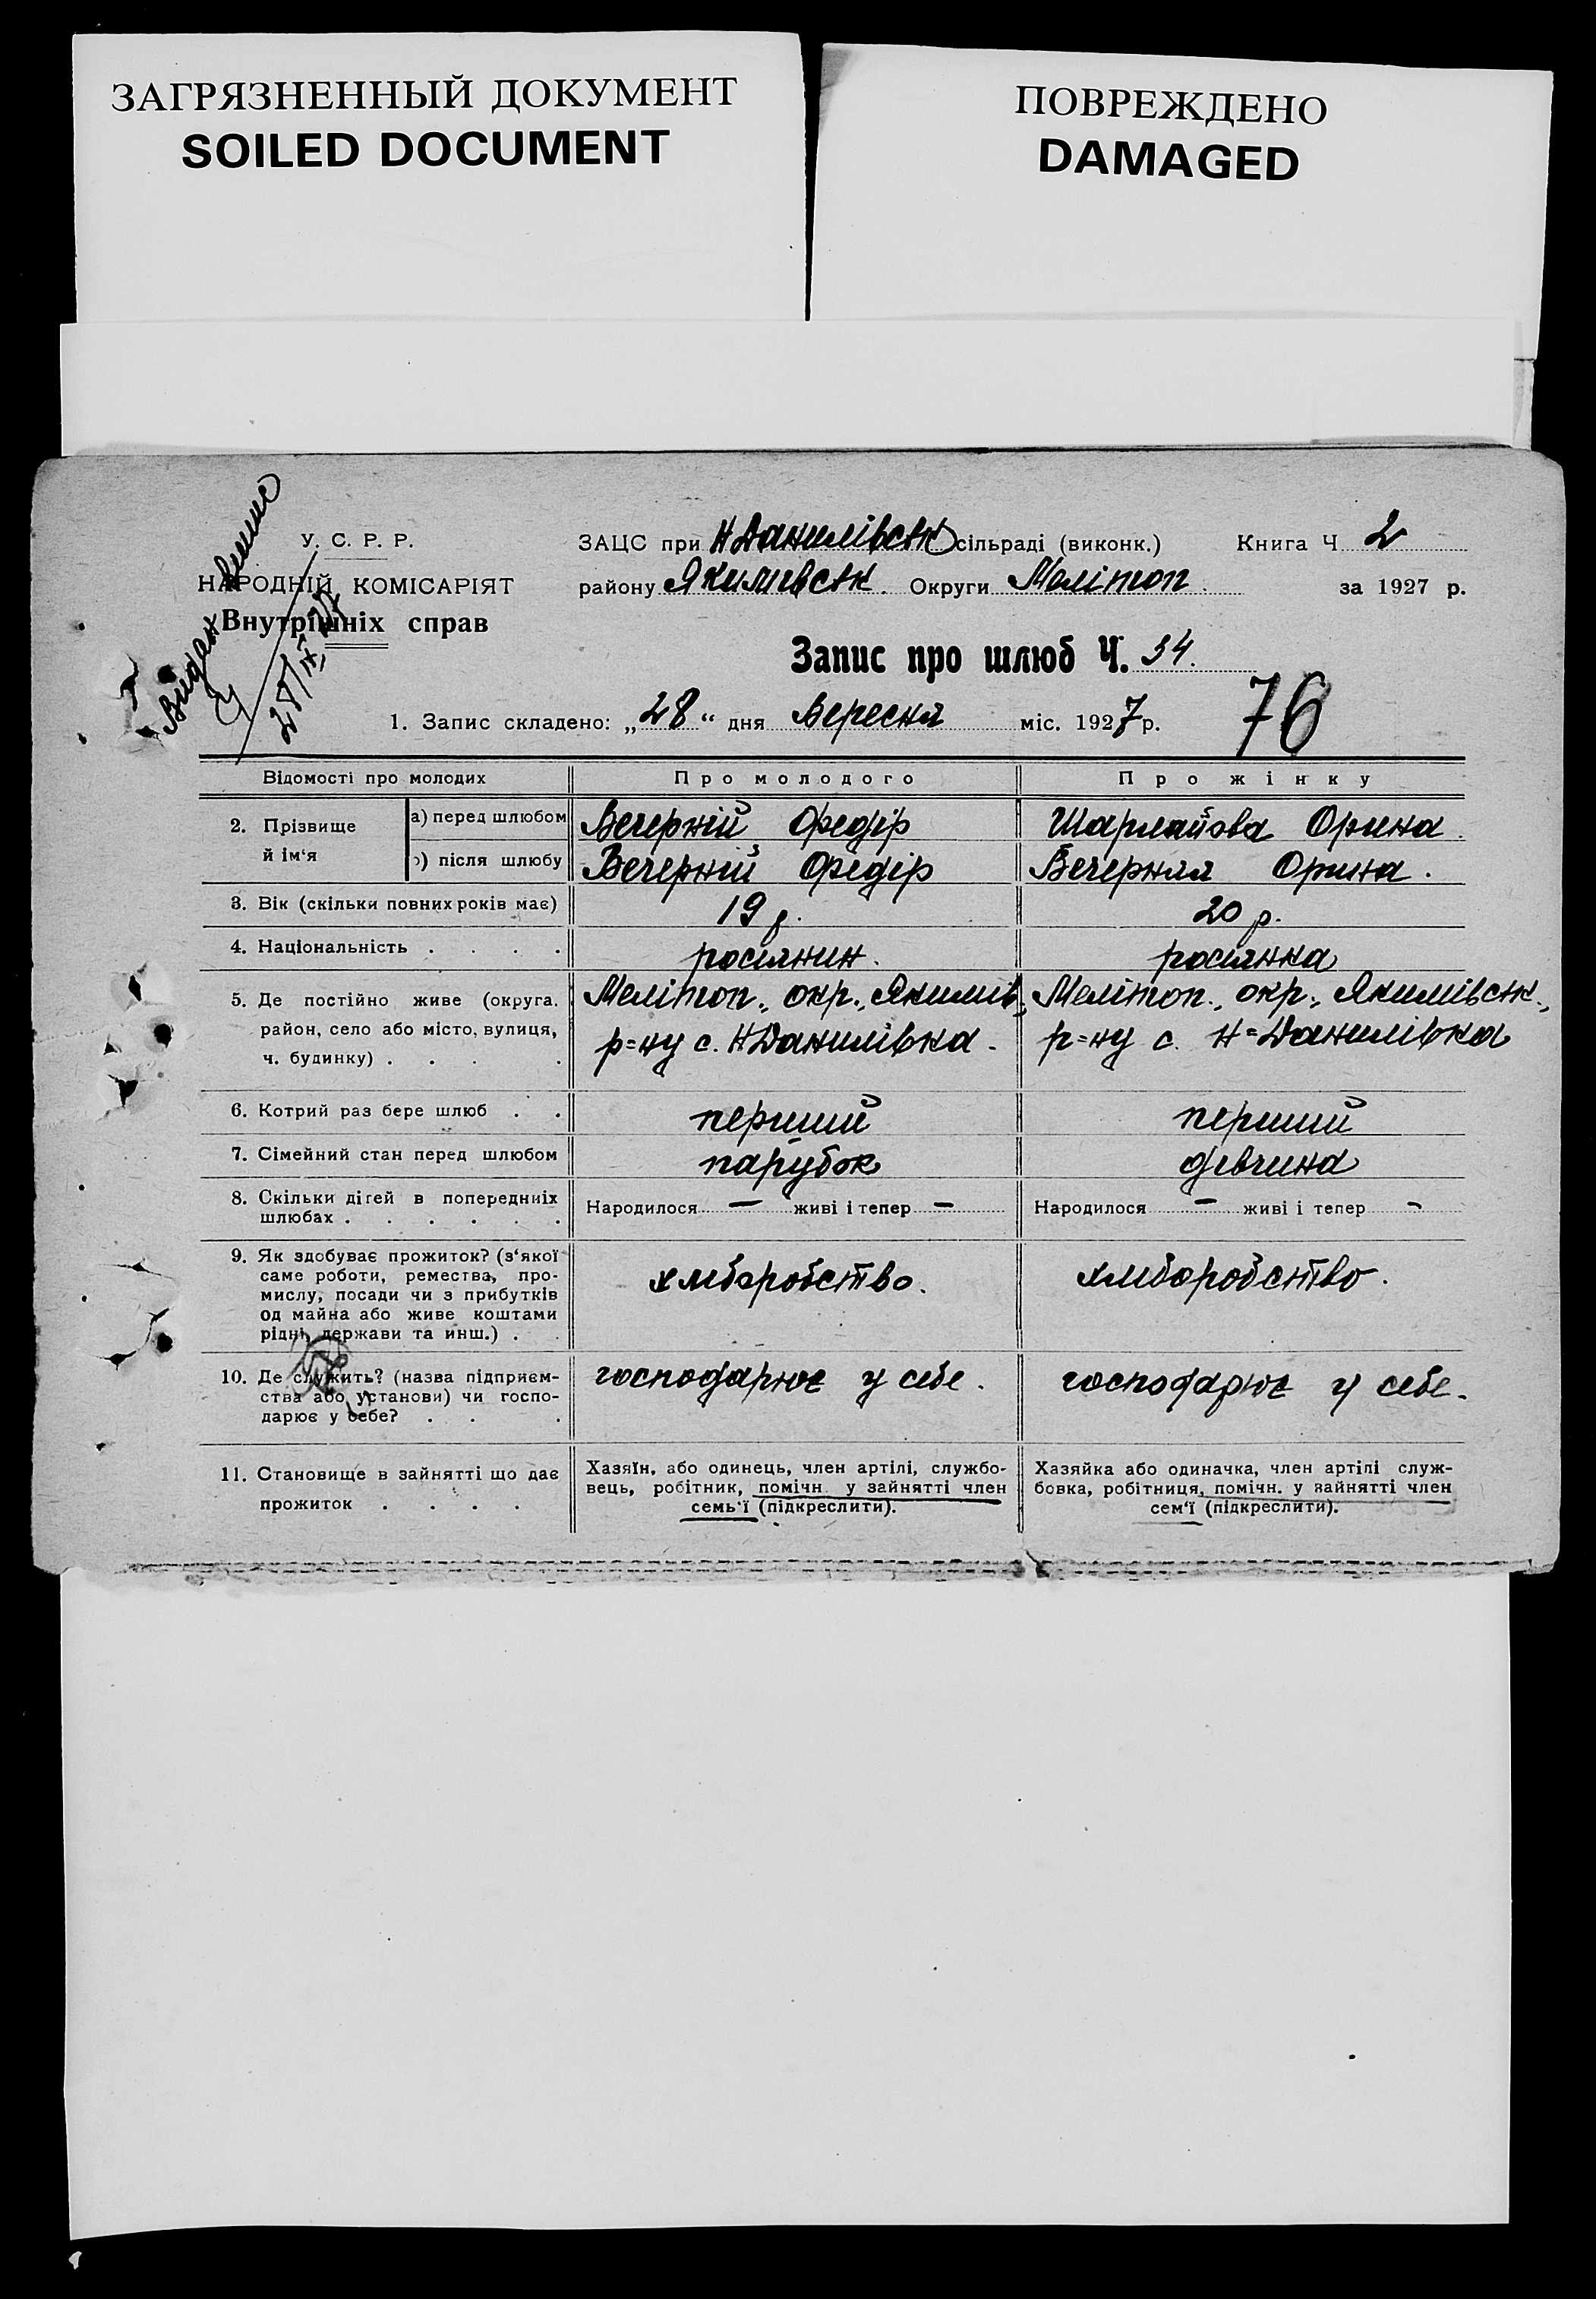 ЗАГРЯЗНЕННЫЙ ДОКУМЕНТ
SOILED DOCUMENT
ПОВРЕЖДЕНО
DAMAGED
Видан
28/IX
У. С. Р. Р.
НАРОДНІЙ КОМІСАРІЯТ
Внутрішніх справ
ЗАЦС при Н Данилівськ сільраді (виконк.) Книга Ч 2
району Якимівськ. Округи Мелітоп. за 1927 р.
Запис про шлюб Ч. 34.
76
1. Запис складено: „28“ дня Вересня міс. 1927 р.
Відомості про молодих Про молодого Про жінку
2. Прізвище й ім‘я а) перед шлюбом Вечерній Федір Шарлайова Орина.
б) після шлюбу Вечерній Федір Вечерняя Орина.
3. Вік (скільки повних років має) 19 р. 20 р.
4. Національність . . . . росіянин. росіянка
5. Де постійно живе (округа, Мелітоп., окр., Якимів., Мелітоп., окр., Якимівськ.,
район, село або місто, вулиця, р=ну с. Н Данилівка. р=ну с. Н=Данилівка
ч. будинку) . . . .
6. Котрий раз бере шлюб . . перший перший
7. Сімейний стан перед шлюбом парубок дівчина
8. Скільки дітей в попередніх Народилося — живі і тепер — Народилося — живі і тепер -
шлюбах . . . . . .
9. Як здобуває прожиток? (з‘якої
саме роботи, ремества, про- хліборобство. хліборобство.
мислу, посади чи з прибутків
од майна або живе коштами
рідні, держави та инш.) . .
10. Де служить? (назва підприєм- господарює у себе. господарює у себе.
ства або установи) чи госпо-
дарює у себе? . . .
11. Становище в зайнятті що дає Хазяїн, або одинець, член артілі, службо- Хазяйка або одиначка, член артілі служ-
прожиток . . . . вець, робітник, помічн. у зайнятті член бовка, робітниця, помічн. у зайнятті член
семь‘ї (підкреслити). сем‘ї (підкреслити).